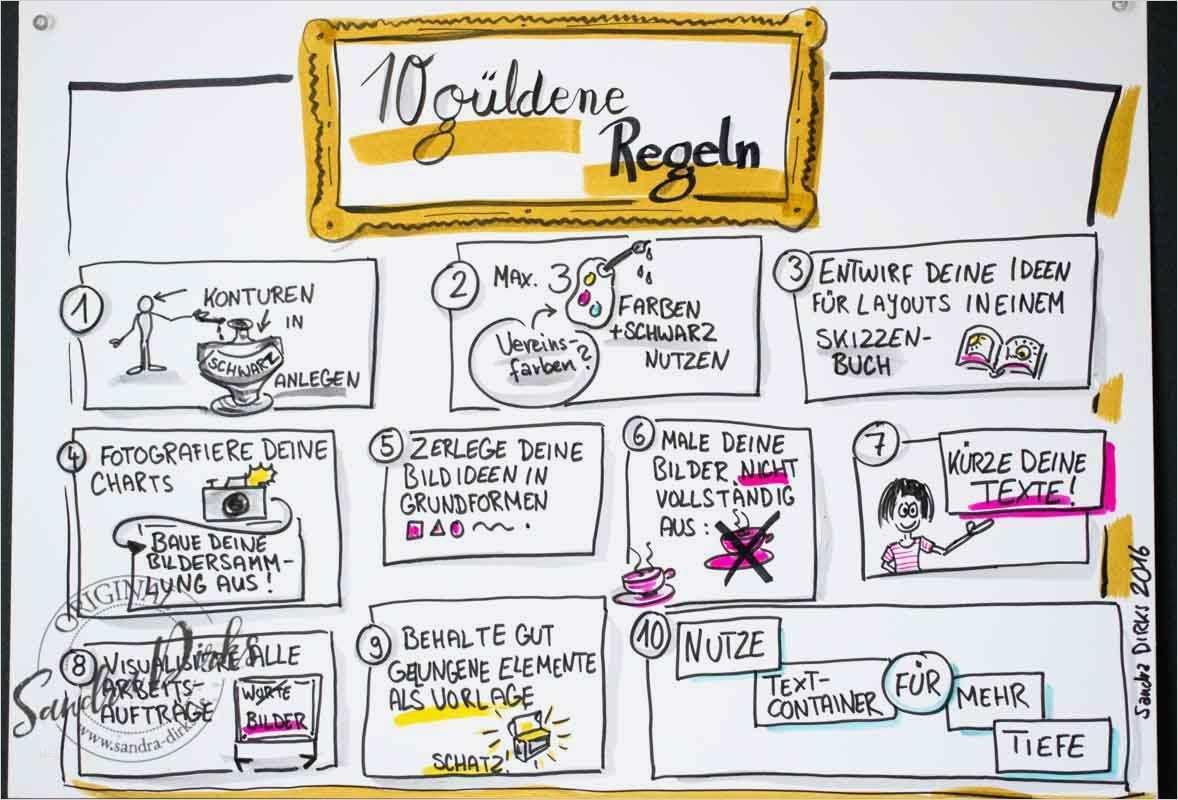 10 güldene
Regeln
1
KONTUREN
IN
SCHWARZ
ANLEGEN
2
MAX. 3
FARBEN
+ SCHWARZ
NUTZEN
Vereins-
farben?
3
ENTWIRF DEINE IDEEN
FÜR LAYOUTS IN EINEM
SKIZZEN-
BUCH
4
FOTOGRAFIERE DEINE
CHARTS
BAUE DEINE
BILDERSAMM-
LUNG AUS!
5
ZERLEGE DEINE
BILDIDEEN IN
GRUNDFORMEN
6
MALE DEINE
BILDER NICHT
VOLLSTÄNDIG
AUS:
7
KÜRZE DEINE
TEXTE!
8
VISUALISIERE ALLE
ARBEITS-
AUFTRÄGE
WORTE
BILDER
9
BEHALTE GUT
GELUNGENE ELEMENTE
ALS VORLAGE
SCHATZ!
10
NUTZE
TEXT-
CONTAINER
FÜR
MEHR
TIEFE
Sandra DIRKS 2016
ORIGINAL
Sandra Dirks
www.sandra-dirks